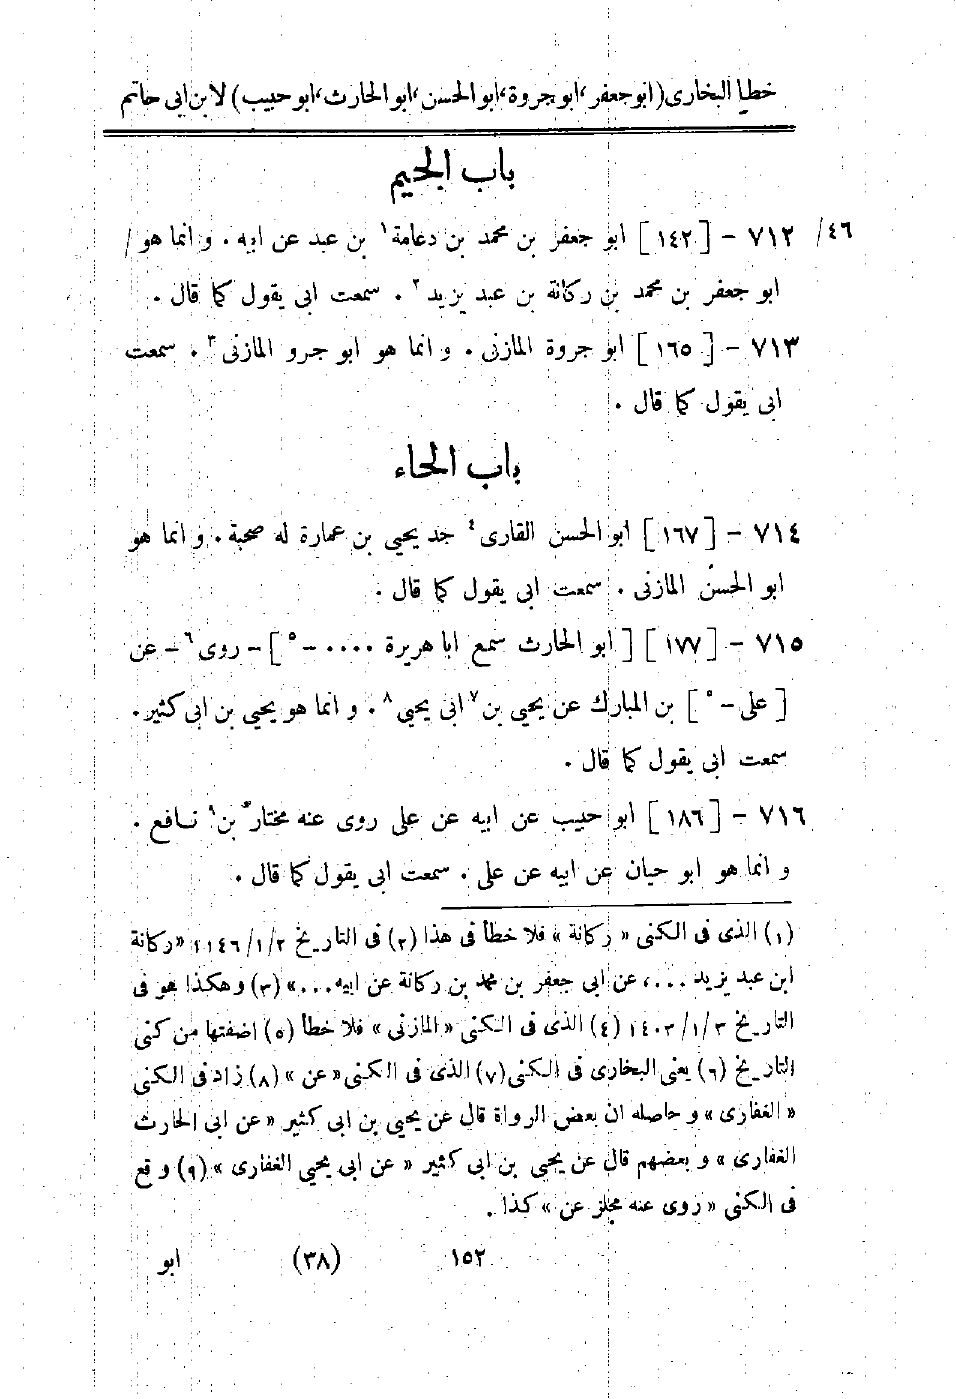 خطا البخارى (ابو جعفر، ابو جروة، ابو الحسن، ابو الحارث، ابو حبيب) لابن ابى حاتم
باب الجيم
٤٦/ ٧١٢ - [١٤٢] ابو جعفر بن محمد بن دعامة١ بن عبد عن ابيه . و انما هو /
ابو جعفر بن محمد بن ركانة بن عبد يزيد٢ . سمعت ابى يقول كما قال .
٧١٣ - [١٦٥] ابو جروة المازنى . و انما هو ابو جرو المازنى٣ . سمعت
ابى يقول كما قال .
باب الحاء
٧١٤ - [١٦٧] ابو الحسن القارى٤ جد يحيى بن عمارة له صحبة . و انما هو
ابو الحسن المازنى . سمعت ابى يقول كما قال .
٧١٥ - [١٧٧] [ابو الحارث سمع ابا هريرة .... -٥] - روى٦ - عن
[على -٥] بن المبارك عن يحيى بن٧ ابى يحيى٨ . و انما هو يحيى بن ابى كثير .
سمعت ابى يقول كما قال .
٧١٦ - [١٨٦] ابو حبيب عن ابيه عن على روى عنه مختار بن٩ نافع .
و انما هو ابو حيان عن ابيه عن على . سمعت ابى يقول كما قال .
(١) الذى فى الكنى « ركانة » فلا خطأ فى هذا (٢) فى التاريخ ١١٤٦/١/٢ «ركانة
ابن عبد يزيد ...، عن ابى جعفر بن محمد بن ركانة عن ابيه...» (٣) و هكذا هو فى
التاريخ ١٤٠٣/١/٣ (٤) الذى فى الكنى « المازنى » فلا خطأ (٥) اضفتها من كنى
التاريخ (٦) يعنى البخارى فى الكنى (٧) الذى فى الكنى « عن » (٨) زاد فى الكنى
« الغفارى » و حاصله ان بعض الرواة قال عن يحيى بن ابى كثير « عن ابى الحارث
الغفارى » و بعضهم قال عن يحيى بن ابى كثير « عن ابى يحيى الغفارى » (٩) و قع
فى الكنى « روى عنه مجلز عن » كذا .
١٥٢ (٣٨) ابو